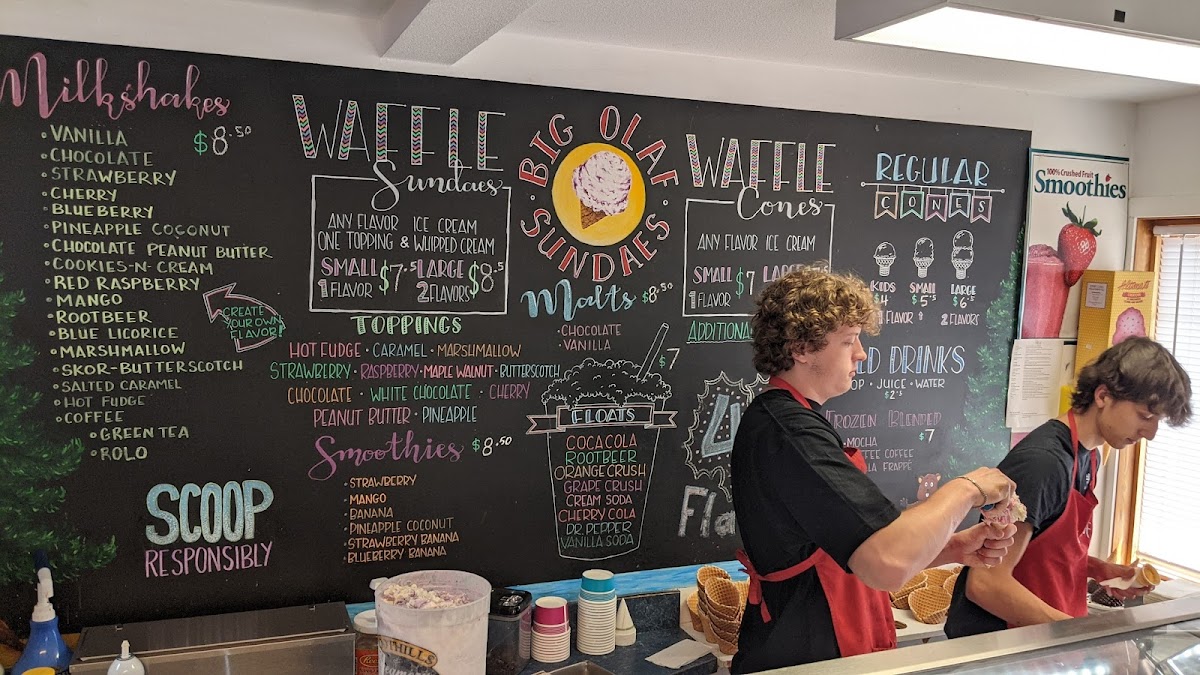 Milkshakes
$8.50
• VANILLA
• CHOCOLATE
• STRAWBERRY
• CHERRY
• BLUEBERRY
• PINEAPPLE COCONUT
• CHOCOLATE PEANUT BUTTER
• COOKIES-N-CREAM
• RED RASPBERRY
• MANGO
• ROOTBEER
• BLUE LICORICE
• MARSHMALLOW
• SKOR-BUTTERSCOTCH
• SALTED CARAMEL
• HOT FUDGE
• COFFEE
• GREEN TEA
• ROLO
CREATE
YOUR OWN
FLAVOR!
SCOOP
RESPONSIBLY
WAFFLE
Sundaes
ANY FLAVOR ICE CREAM
ONE TOPPING & WHIPPED CREAM
SMALL $7.5 LARGE $8.5
1 FLAVOR 2 FLAVORS
TOPPINGS
HOT FUDGE • CARAMEL • MARSHMALLOW
STRAWBERRY • RASPBERRY • MAPLE WALNUT • BUTTERSCOTCH
CHOCOLATE • WHITE CHOCOLATE • CHERRY
PEANUT BUTTER • PINEAPPLE
Smoothies $8.50
• STRAWBERRY
• MANGO
• BANANA
• PINEAPPLE COCONUT
• STRAWBERRY BANANA
• BLUEBERRY BANANA
BIG OLAF
• SUNDAES •
Malts $8.50
• CHOCOLATE
• VANILLA
$7
FLOATS
COCA COLA
ROOTBEER
ORANGE CRUSH
GRAPE CRUSH
CREAM SODA
CHERRY COLA
DR. PEPPER
VANILLA SODA
WAFFLE
Cones
ANY FLAVOR ICE CREAM
SMALL $7
1 FLAVOR
ADDITIONAL
REGULAR
CONES
KIDS SMALL LARGE
$4 $5.5 $6.5
FLAVOR 2 FLAVORS
DRINKS
JUICE • WATER
$2.5
FROZEN BLENDED
$7
• MOCHA
COFFEE
FRAPPE
100% Crushed Fruit
Smoothies